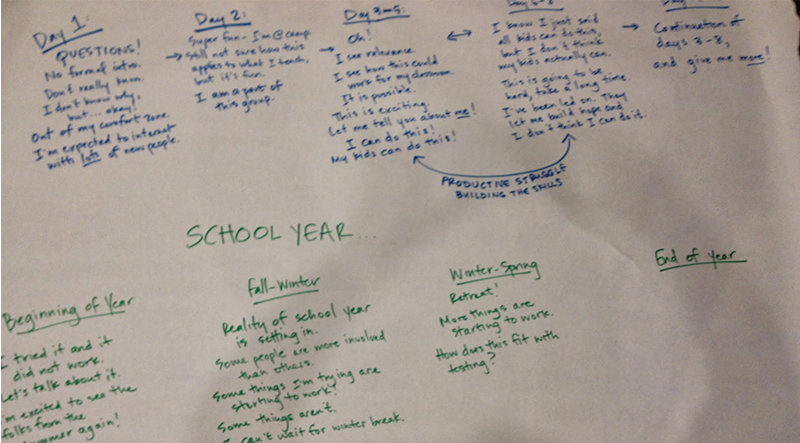 Day 1:
QUESTIONS!
No formal intro.
Don't really know.
I don't know why,
but... okay!
Out of my comfort zone.
I'm expected to interact
with lots of new people.
Day 2:
Super fun - I'm @ camp
Still not sure how this
applies to what I teach,
but it's fun.
I am a part of
this group.
Day 3-5:
Oh!
I see relevance.
I see how this could
work for my classroom.
It is possible.
This is exciting.
Let me tell you about me!
I can do this!
My kids can do this!
I know I just said
all kids can do this,
but I don't think
my kids actually can.
This is going to be
hard, take a long time.
I've been led on. They
let me build hope and
I don't think I can do it.
Continuation of
days 3-8,
and give me more!
PRODUCTIVE STRUGGLE
BUILDING THE SKILLS
SCHOOL YEAR...
Beginning of Year
I tried it and it
did not work.
Let's talk about it.
I'm excited to see the
folks from the
summer again!
Fall-Winter
Reality of school year
is setting in.
Some people are more involved
than others.
Some things I'm trying are
starting to work!
Some things aren't.
I can't wait for winter break.
Winter-Spring
Retreat!
More things are
starting to work.
How does this fit with
testing?
End of Year